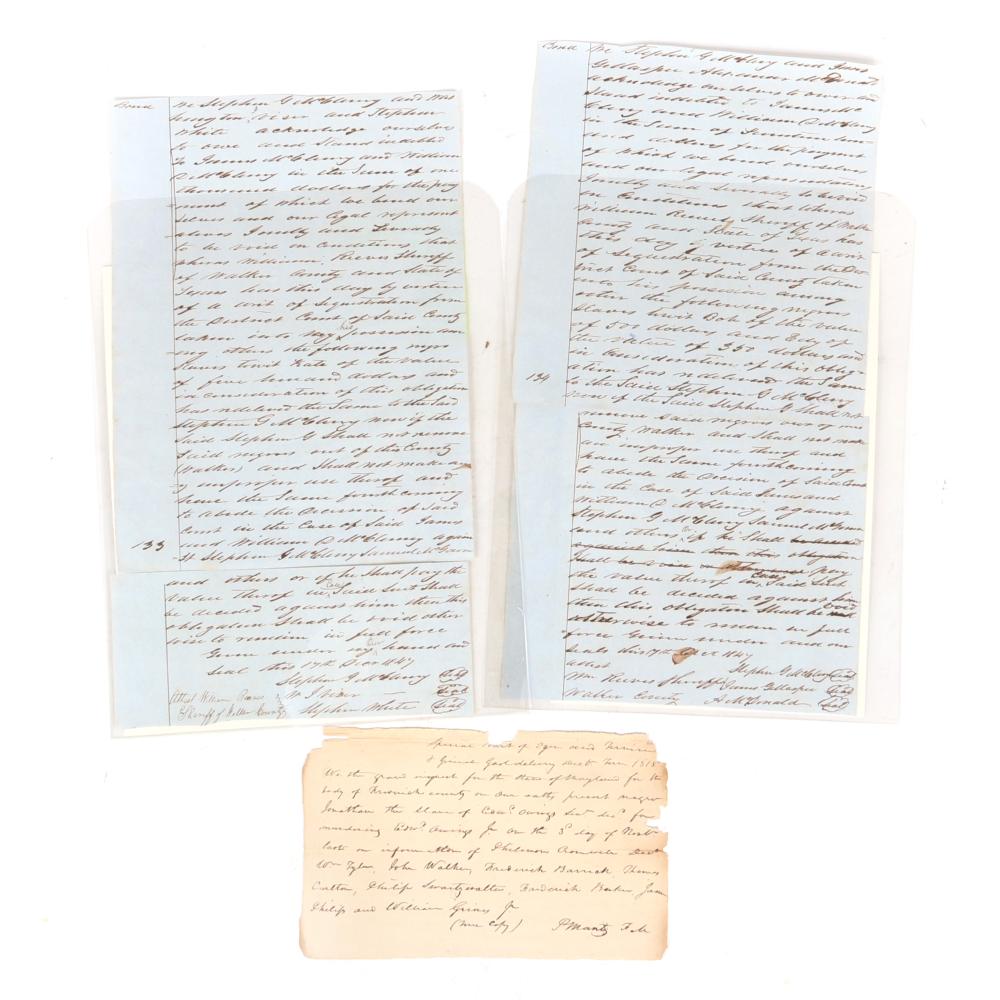 Bond We Stephen G McClenny and Was
hington Viser and Stephen
White acknowledge ourselves
to owe and Stand indebted
To James McClenny and William
P McClenny in the Sum of one
thousand dollars for the pay
ment of which we bend our
selves and our legal represent
atives Jointly and Severally
to be void on Conditions that
wheras William Reeves Sheriff
of Walker County and State of
Texas has this day by virtue
of a writ of Sequestration from
the District Court of Said County
taken into my his possession am
ong others the following negro
Slaves towit Kate of the value
of five hundred dollars and
in Consideration of this obligation
has redelivered the Same to the Said
Stephen G McClenny now if the
Said Stephen G Shall not remove
Said negroes out of this County
(Walker) and Shall not make an
y improper use therof and
have the Same fourthcoming
to abide the Decision of Said
Court in the Case of Said James
133 and William P McClenny again
st Stephen G McClenny Samuel McGown
and others or if he Shall pay the
value therof in Case Said Suit Shall
be decided against him then this
obligation Shall be void other
wise to remain in full force
Given under my hand and
Seal this 17th Dec 1847
Stephen G McClenny Seal
W J Viser Seal
Stephen White Seal
Attest William Reeves
Sheriff of Walker County
Bond We Stephen G McClenny and James
Gillaspie Alexander McDonald
acknowledge ourselves to owe and
Stand indebted to James Mc
Clenny and William P McClenny
in the Sum of Seventeen hun
dred dollars for the payment
of which we bend ourselves
and our legal representatives
Jointly and Severally to be void
on Conditions that wheras
William Reeves Sheriff of Walker
County and State of Texas has
this day by vertue of a writ
of Sequestration from the Dis
trict Court of Said County taken
into his possession among
other the following negroes
Slaves towit Bob of the value
of 500 dollars and Edy of
the value of 350 dollars and
in Consideration of this oblig
ation has redelivered the Same
134 to the Said Stephen G McClenny
now if the Said Stephen G Shall not
remove said negroes out of
County Walker and Shall not make
an improper use therof and
have the Same fourthcoming
to abide the decision of Said Court
in the Case of Said James and
William P McClenny against
Stephen G McClenny Samuel McGown
and others or if he Shall be
Shall be void or otherwise pay
the value therof in Case Said Suit
Shall be decided against him
then this obligation Shall be void
otherwise to remain in full
force Given under our
Seals this 17th Dec 1847
Stephen G McClenny Seal
attest James Gillaspie Seal
Wm Reeves Sheriff A McDonald Seal
Walker County
Special Court of Oyer and Terminer
& General Gaol delivery Decb Term 1818
We the grand inquest for the State of Maryland for the
body of Frederick county on our oaths present negro
Jonathan the Slave of Edwd Owings for
murdering Edwd Owings Jr on the 3d day of Novbr
last on information of Philemon Cromwell
Wm Tyler, John Walker, Frederick Barrick, Thomas
Carlton, Philip Swartzwalter, Frederick Baker, James
Philips and William Grimes Jr
(True Copy) P Mantz F M